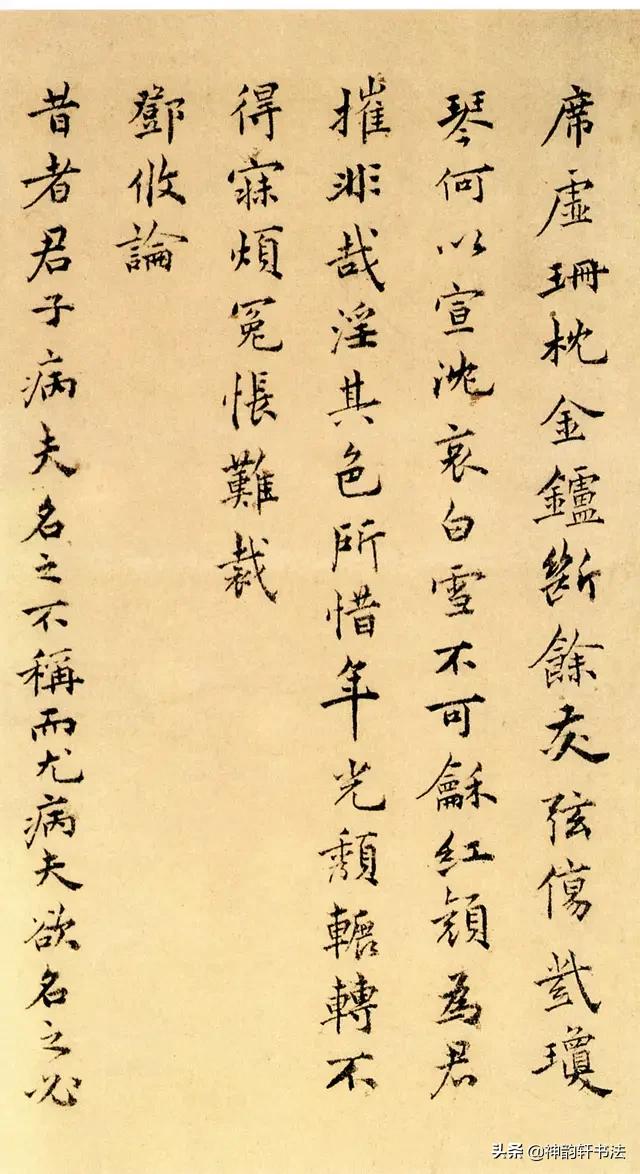 席虛珊枕金鑪斷餘灰弦傷瓊
琴何以宣沈哀白雪不可龢紅顏為君
摧非哉淫其色所惜年光頹輾轉不
得寐煩冤悵難裁
鄧攸論
昔者君子病夫名之不稱而尤病夫欲名之必
头条 @神韵轩书法